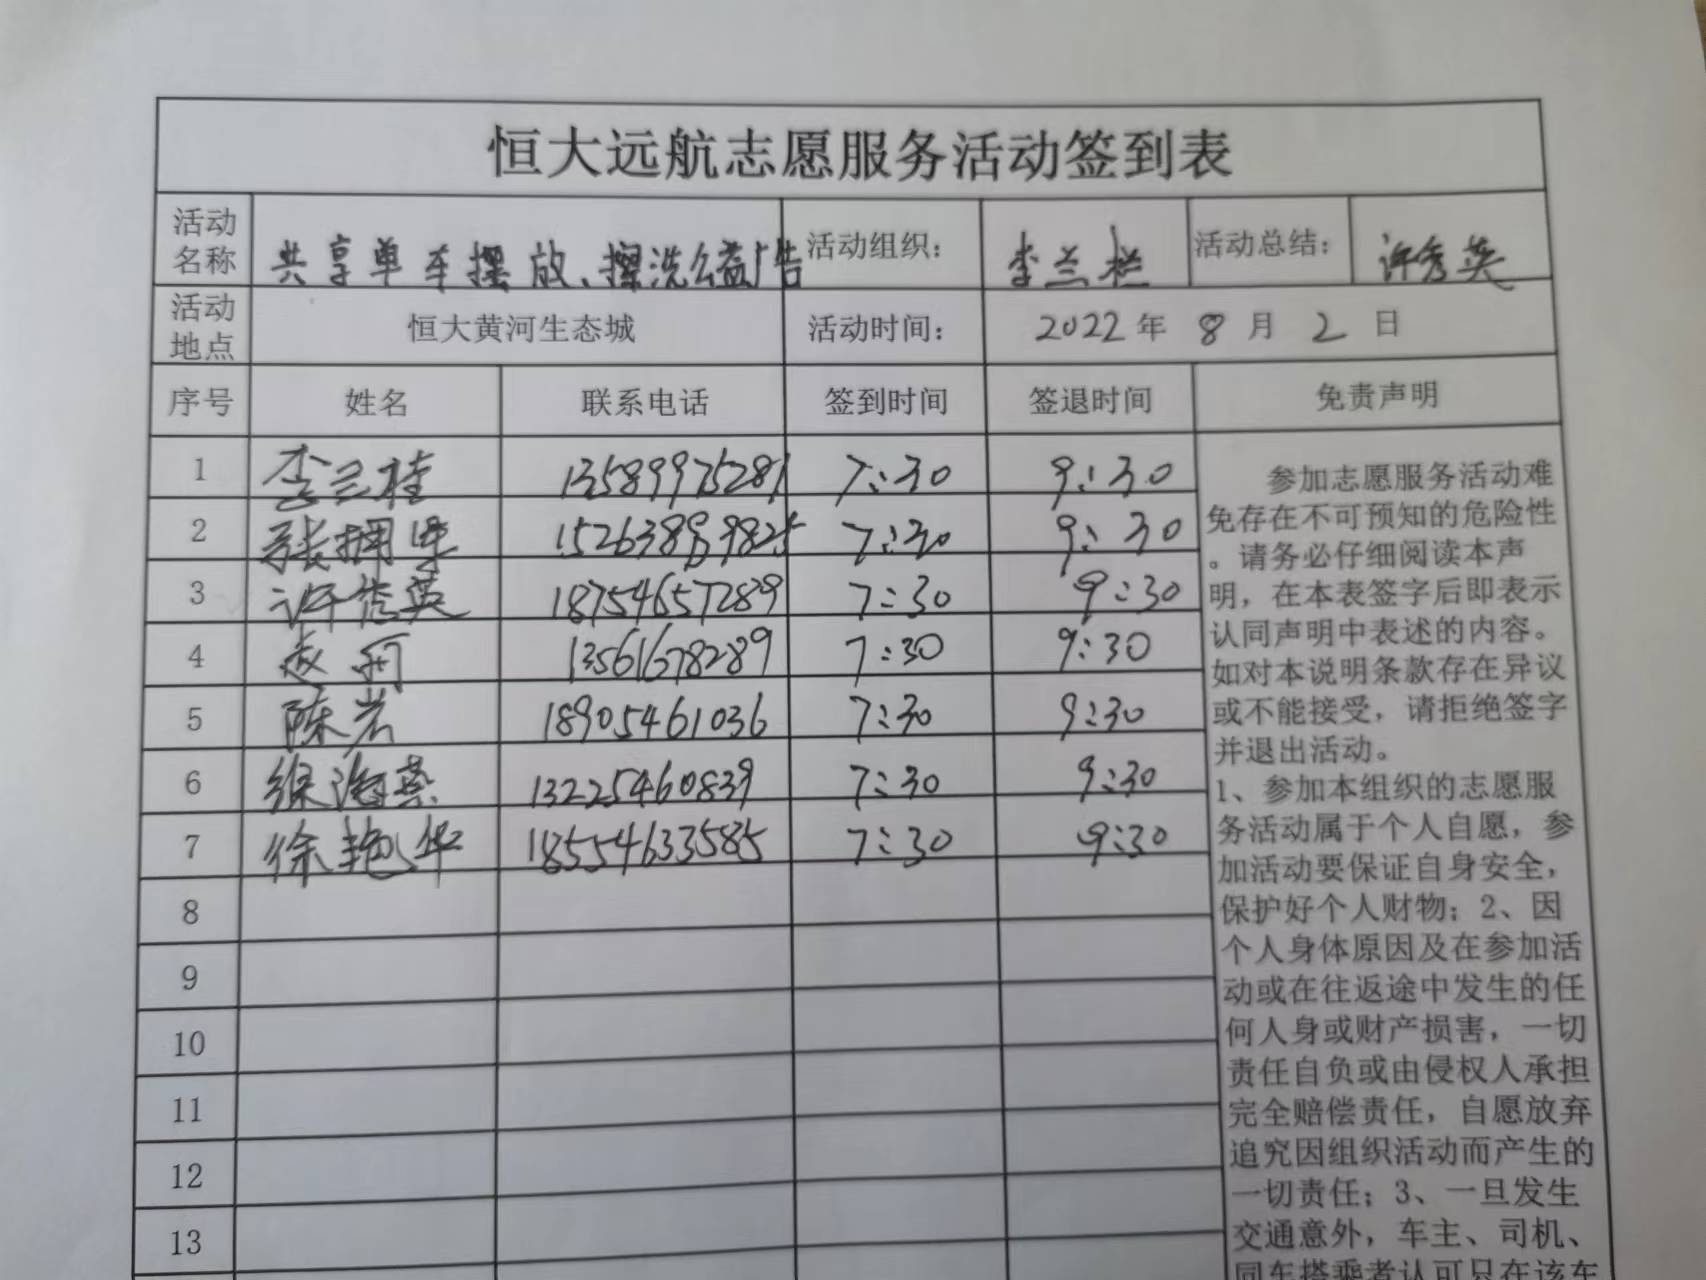 恒大远航志愿服务活动签到表
活动名称 共享单车摆放、擦洗公益广告 活动组织： 李兰桂 活动总结： 许秀英
活动地点 恒大黄河生态城 活动时间： 2022年 8月 2日
序号 姓名 联系电话 签到时间 签退时间 免责声明
1 李兰桂 13589975281 7:30 9:30
2 15263899825 7:30 9:30
3 许秀英 18754657289 7:30 9:30
4 13561678289 7:30 9:30
5 陈岩 18905461036 7:30 9:30
6 徐海燕 13225460839 7:30 9:30
7 徐艳华 18554633585 7:30 9:30
8
9
10
11
12
13
参加志愿服务活动难
免存在不可预知的危险性
。请务必仔细阅读本声
明，在本表签字后即表示
认同声明中表述的内容。
如对本说明条款存在异议
或不能接受，请拒绝签字
并退出活动。
1、参加本组织的志愿服
务活动属于个人自愿，参
加活动要保证自身安全，
保护好个人财物；2、因
个人身体原因及在参加活
动或在往返途中发生的任
何人身或财产损害，一切
责任自负或由侵权人承担
完全赔偿责任，自愿放弃
追究因组织活动而产生的
一切责任；3、一旦发生
交通意外，车主、司机、
同车搭乘者认可只在该车